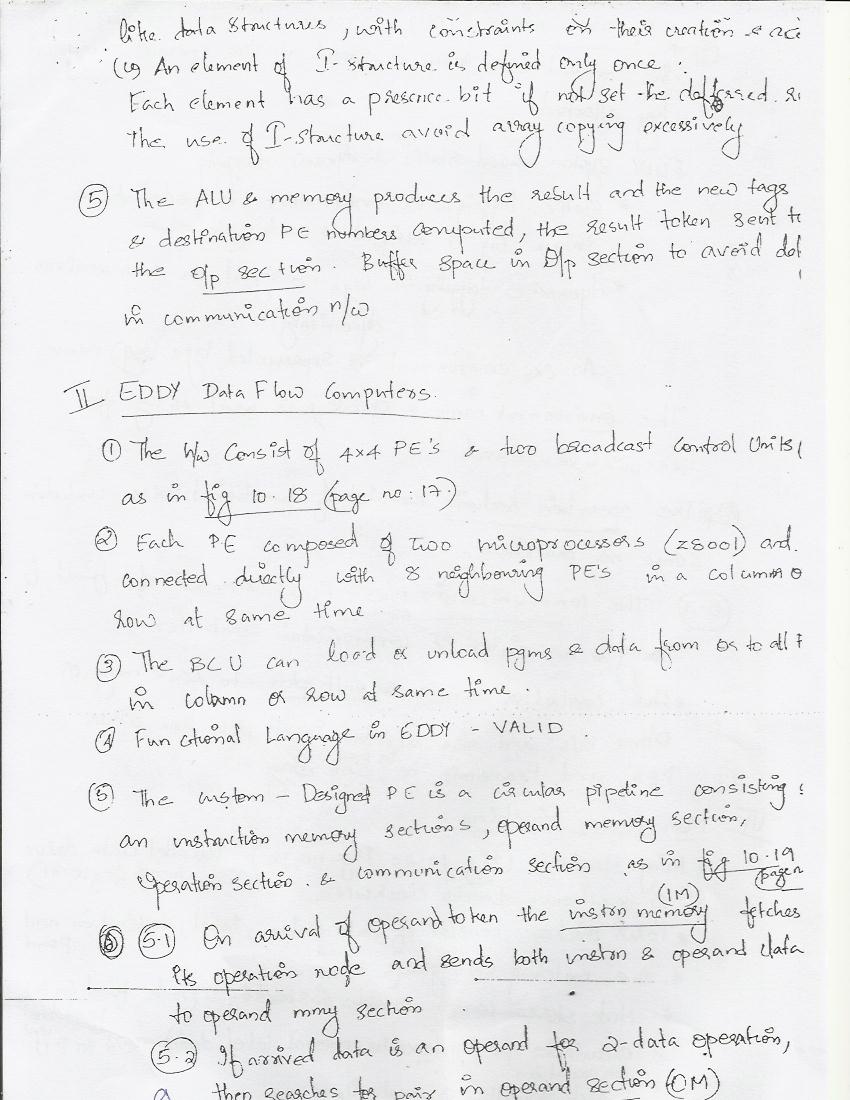 like data structures, with constraints on their creation &
(c) An element of I-structure is defined only once.
Each element has a presence bit if not set the defferred
The use of I-structure avoid array copying excessively
⑤ The ALU & memory produces the result and the new tags
& destination PE numbers computed, the result token sent
the o/p section. Buffer space in O/p section to avoid
in communication n/w
II EDDY Data Flow Computers.
① The h/w consist of 4x4 PE's & two broadcast control Units,
as in fig 10.18 (page no: 17)
② Each PE composed of two microprocessors (Z8001) and
connected directly with 8 neighbouring PE's in a column
row at same time.
③ The BCU can load or unload pgms & data from or to all
in column or row at same time.
④ Functional Language in EDDY - VALID.
⑤ The custom - Designed PE is a circular pipeline consisting
an instruction memory sections, operand memory section,
Operation section & communication section as in fig 10.19
page
(IM)
5.1 On arrival of operand token the instrn memory fetches
its operation node and sends both instrn & operand data
to operand mmy section.
5.2 If arrived data is an operand for 2-data operation,
then searches for pair in operand section (OM)